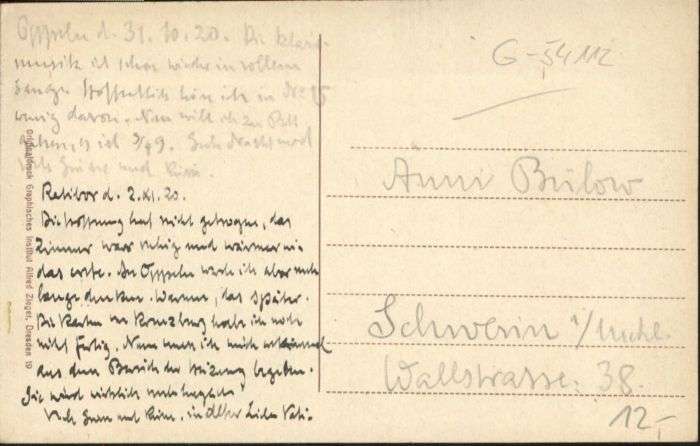 Oppeln d. 31.10.20. Die Klavier-
musik ist schon wieder in vollem
Gange. Hoffentlich höre ich in No 15
wenig davon. Nun will ich zu Bett
gehen, es ist 3/4 9. Gute Nacht und
viele Grüsse und Küsse.
Ratibor d. 2.XI.20.
Die Hoffnung hat nicht getrogen, das
Zimmer war ruhig und wärmer wie
das erste. An Oppeln werde ich aber noch
lange denken. Warum, das später.
Die Karten von Kreuzburg habe ich noch
nicht fertig. Nun muss ich mich
aus dem Bereich der Heizung begeben.
Sie wird wirklich unbehaglich.
Viele Grüsse und Küsse. in alter Liebe Vati.
Originaldruck Graphisches Institut Alfred Zieger, Dresden 19
G-54112
Änni Bülow
Schwerin i/Meckl.
Wallstrasse: 38.
12,-